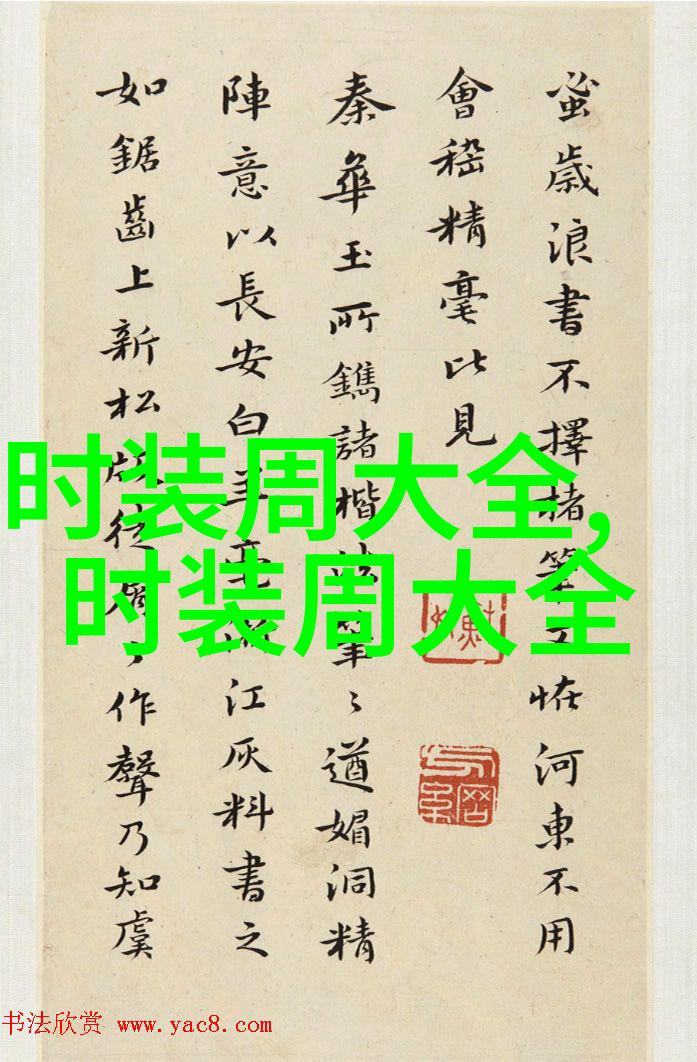 蚤歲浪書不擇楮筆又恠河東不用
會稽精毫比見
秦華玉所鐫諸楷法筆〻遒媚洞精
陣意以長安白羊毫江灰料書之
如鋸齒上新松作聲乃知虞
时装周大全,
时装周大全
书法欣赏 www.yac8.com